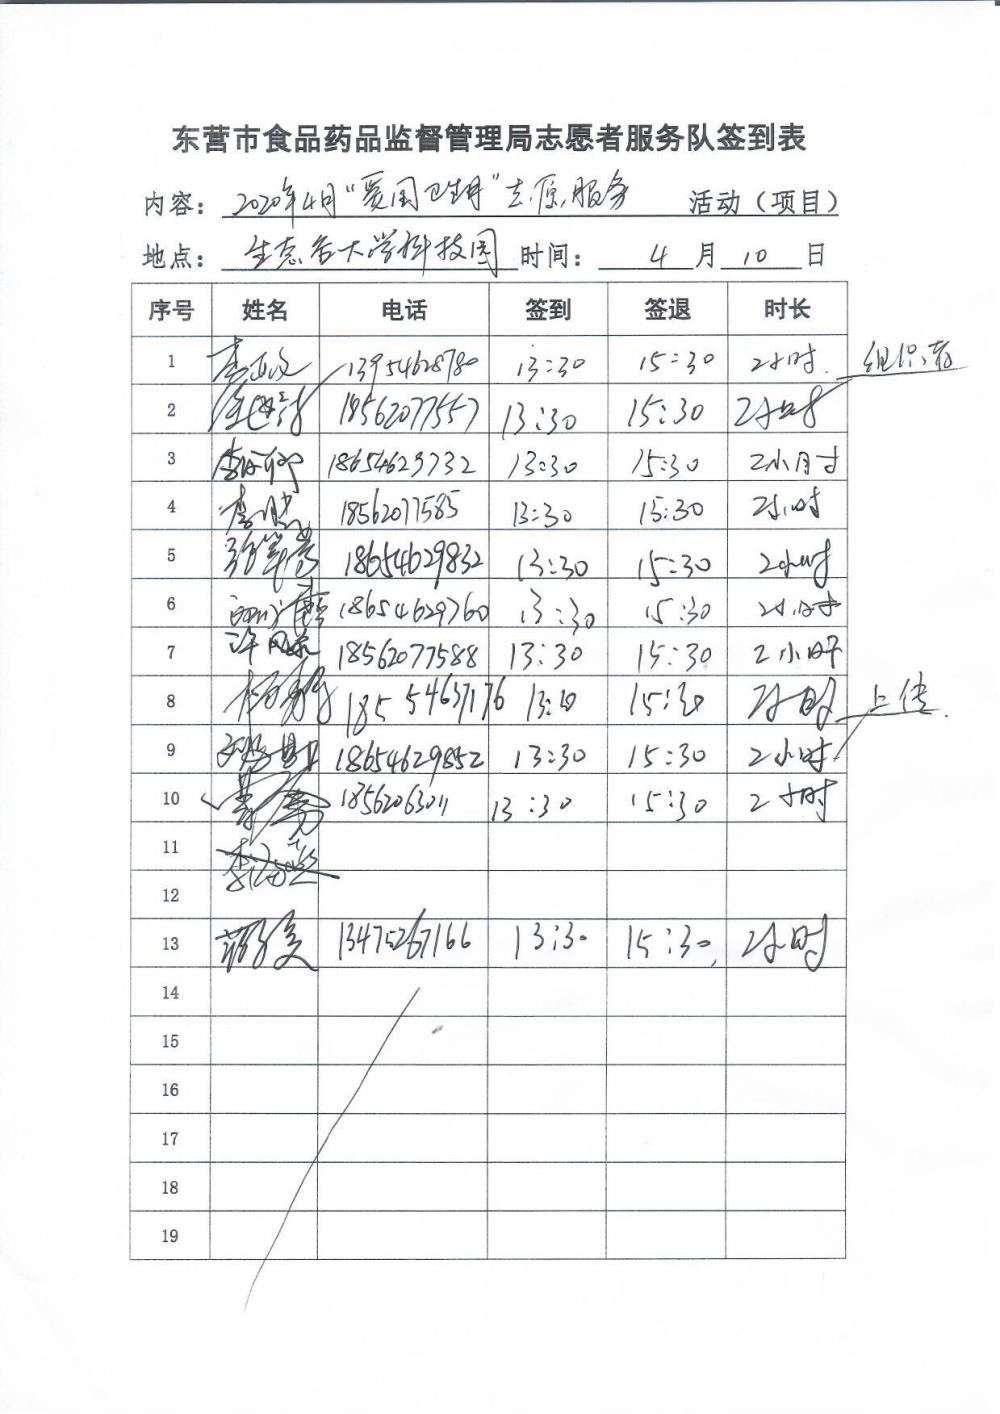 东营市食品药品监督管理局志愿者服务队签到表
内容：2020年4月“爱国卫生月”志愿服务 活动（项目）
地点：生态谷大学科技园 时间：4月10日
序号 姓名 电话 签到 签退 时长
1 13954628780 13:30 15:30 2小时. 组织者
2 18562077557 13:30 15:30 2小时
3 18654629732 13:30 15:30 2小时
4 李 18562077585 13:30 15:30 2小时
5 18654629832 13:30 15:30 2小时
6 18654629760 13:30 15:30 2小时
7 许 18562077588 13:30 15:30 2小时
8 杨 18554637176 15:30 2小时 上传
9 18654629852 13:30 15:30 2小时
10 18562063011 13:30 15:30 2小时
11
12
13 13475267166 13:30 15:30. 2小时
14
15
16
17
18
19